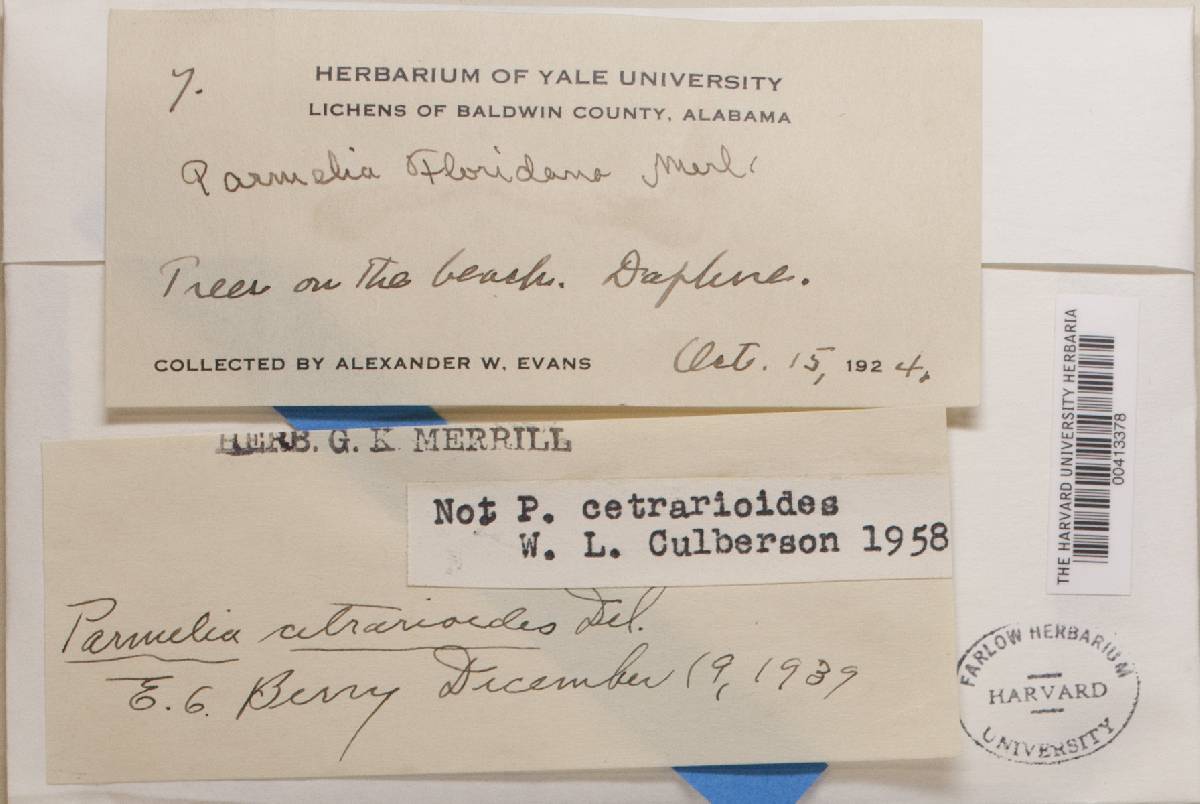 7.
HERBARIUM OF YALE UNIVERSITY
LICHENS OF BALDWIN COUNTY, ALABAMA
Parmelia Floridana Merl.
Trees on the beach. Daphne.
COLLECTED BY ALEXANDER W. EVANS
Oct. 15, 1924.
HERB. G. K. MERRILL
Not P. cetrarioides
W. L. Culberson 1958
Parmelia cetrarioides Del.
E. C. Berry December 19, 1939
THE HARVARD UNIVERSITY HERBARIA
00413378
FARLOW HERBARIUM
HARVARD
UNIVERSITY